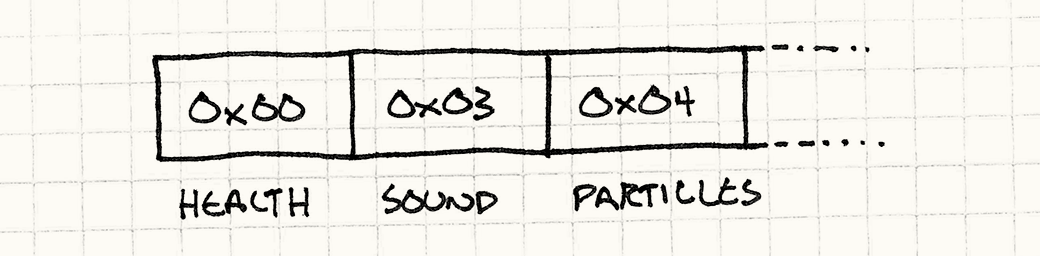 0x00 0x03 0x04
HEALTH SOUND PARTICLES